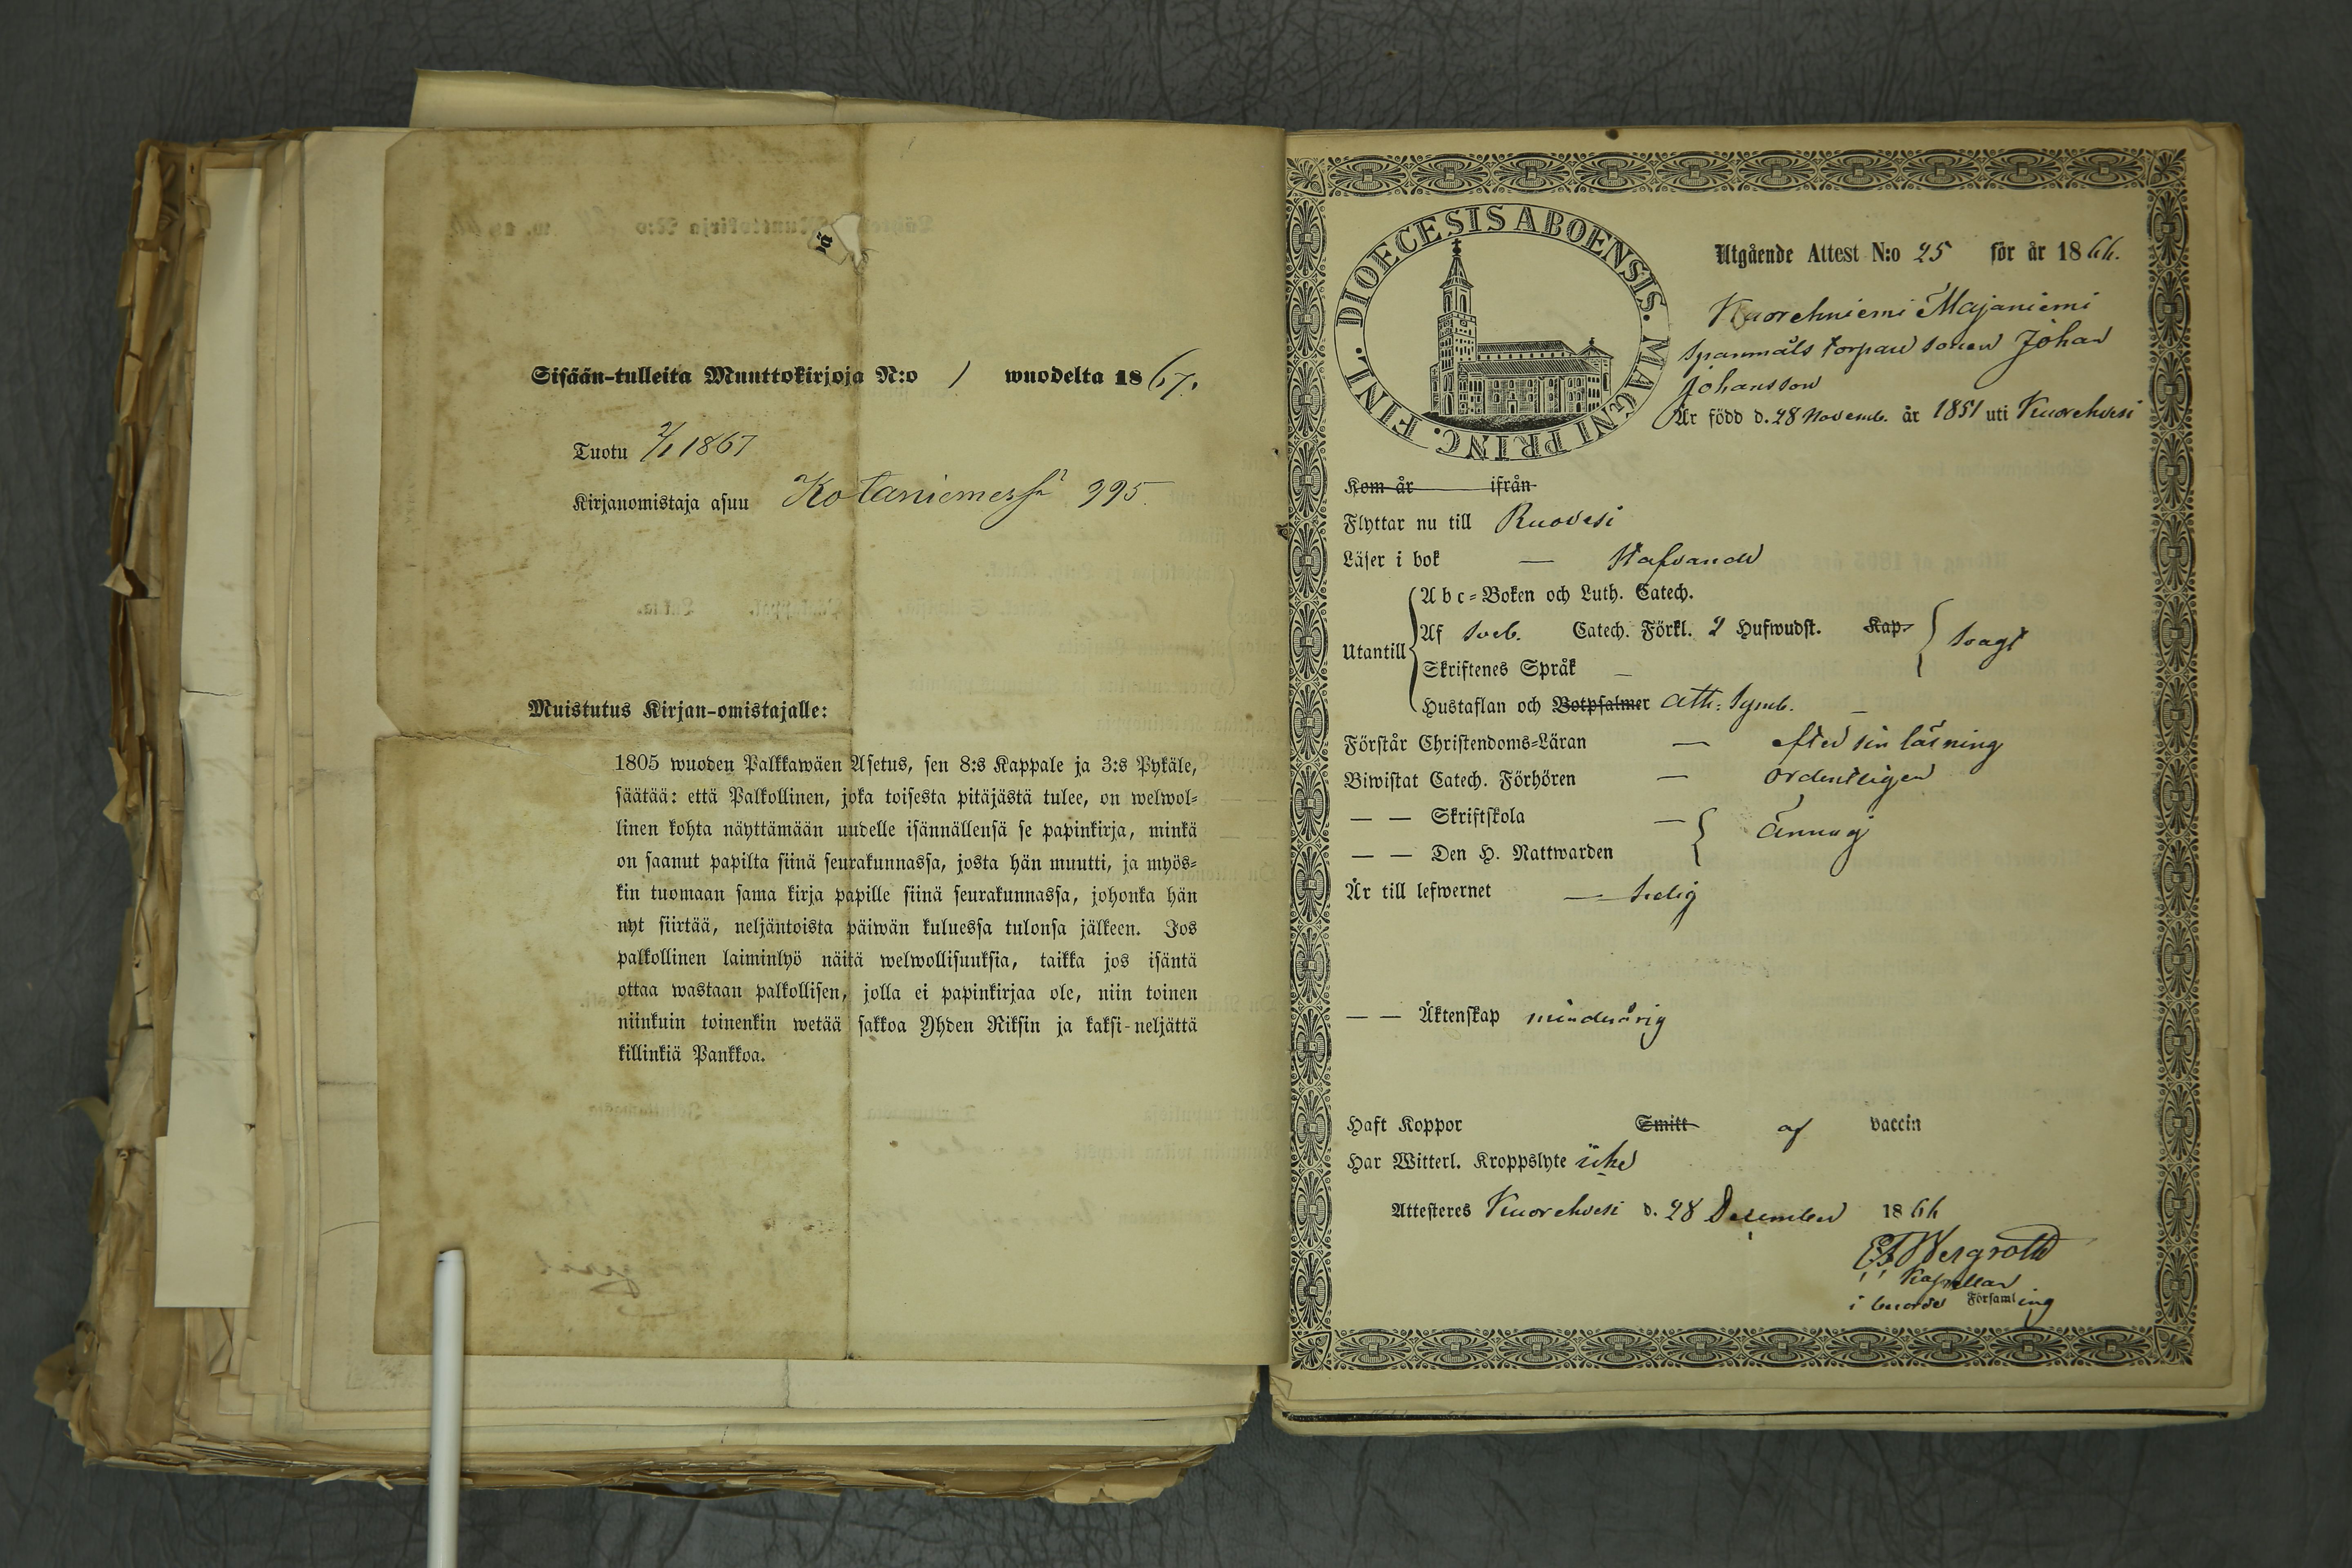 Sisään-tulleita Muuttokirjoja N:o 1 wuodelta 1867.
Tuotu 2/1 1867
Kirjanomistaja asuu Kotaniemessä 995
Muistutus Kirjan-omistajalle:
1805 wuoden Palkkawäen Asetus, sen 8:s Kappale ja 3:s Pykäle,
säätää: että Palkollinen, joka toisesta pitäjästä tulee, on welwol-
linen kohta näyttämään uudelle isännällensä se papinkirja, minkä
on saanut papilta siinä seurakunnassa, josta hän muutti, ja myös-
kin tuomaan sama kirja papille siinä seurakunnassa, johonka hän
nyt siirtää, neljäntoista päiwän kuluessa tulonsa jälkeen. Jos
palkollinen laiminlyö näitä welwollisuuksia, taikka jos isäntä
ottaa wastaan palkollisen, jolla ei papinkirjaa ole, niin toinen
niinkuin toinenkin wetää sakkoa Yhden Riksin ja kaksi-neljättä
killinkiä Pankkoa.
DIOECESIS ABOENSIS. MAGNI PRINC. FINL.
Utgående Attest N:o 25 för år 1866.
Kuorehniemi Majaniemi
Spanmåls torpare sonen Johan
Johansson
Är född d. 28 Novemb. år 1851 uti Kuorehvesi
Kom år ifrån
Flyttar nu till Ruovesi
Läser i bok — Stafvande
Abc-Boken och Luth. Catech.
Utantill Af Sveb. Catech. Förkl. 2 Hufwudst. Kap. svagt
Skriftenes Språk —
Hustaflan och Botpsalmer Ath: Symb. —
Förstår Christendoms-Läran — efter sin läsning
Biwistat Catech. Förhören — Ordentligen
— — Skriftskola — ännu ej
— — Den H. Nattwarden
Är till lefwernet — Sedig
— — Äktenskap minderårig
Haft Koppor Smitt af vaccin
Har Witterl. Kroppslyte icke
Attesteres Kuorehvesi d. 28 December 1866
Bergroth
Kapellan
i Församling